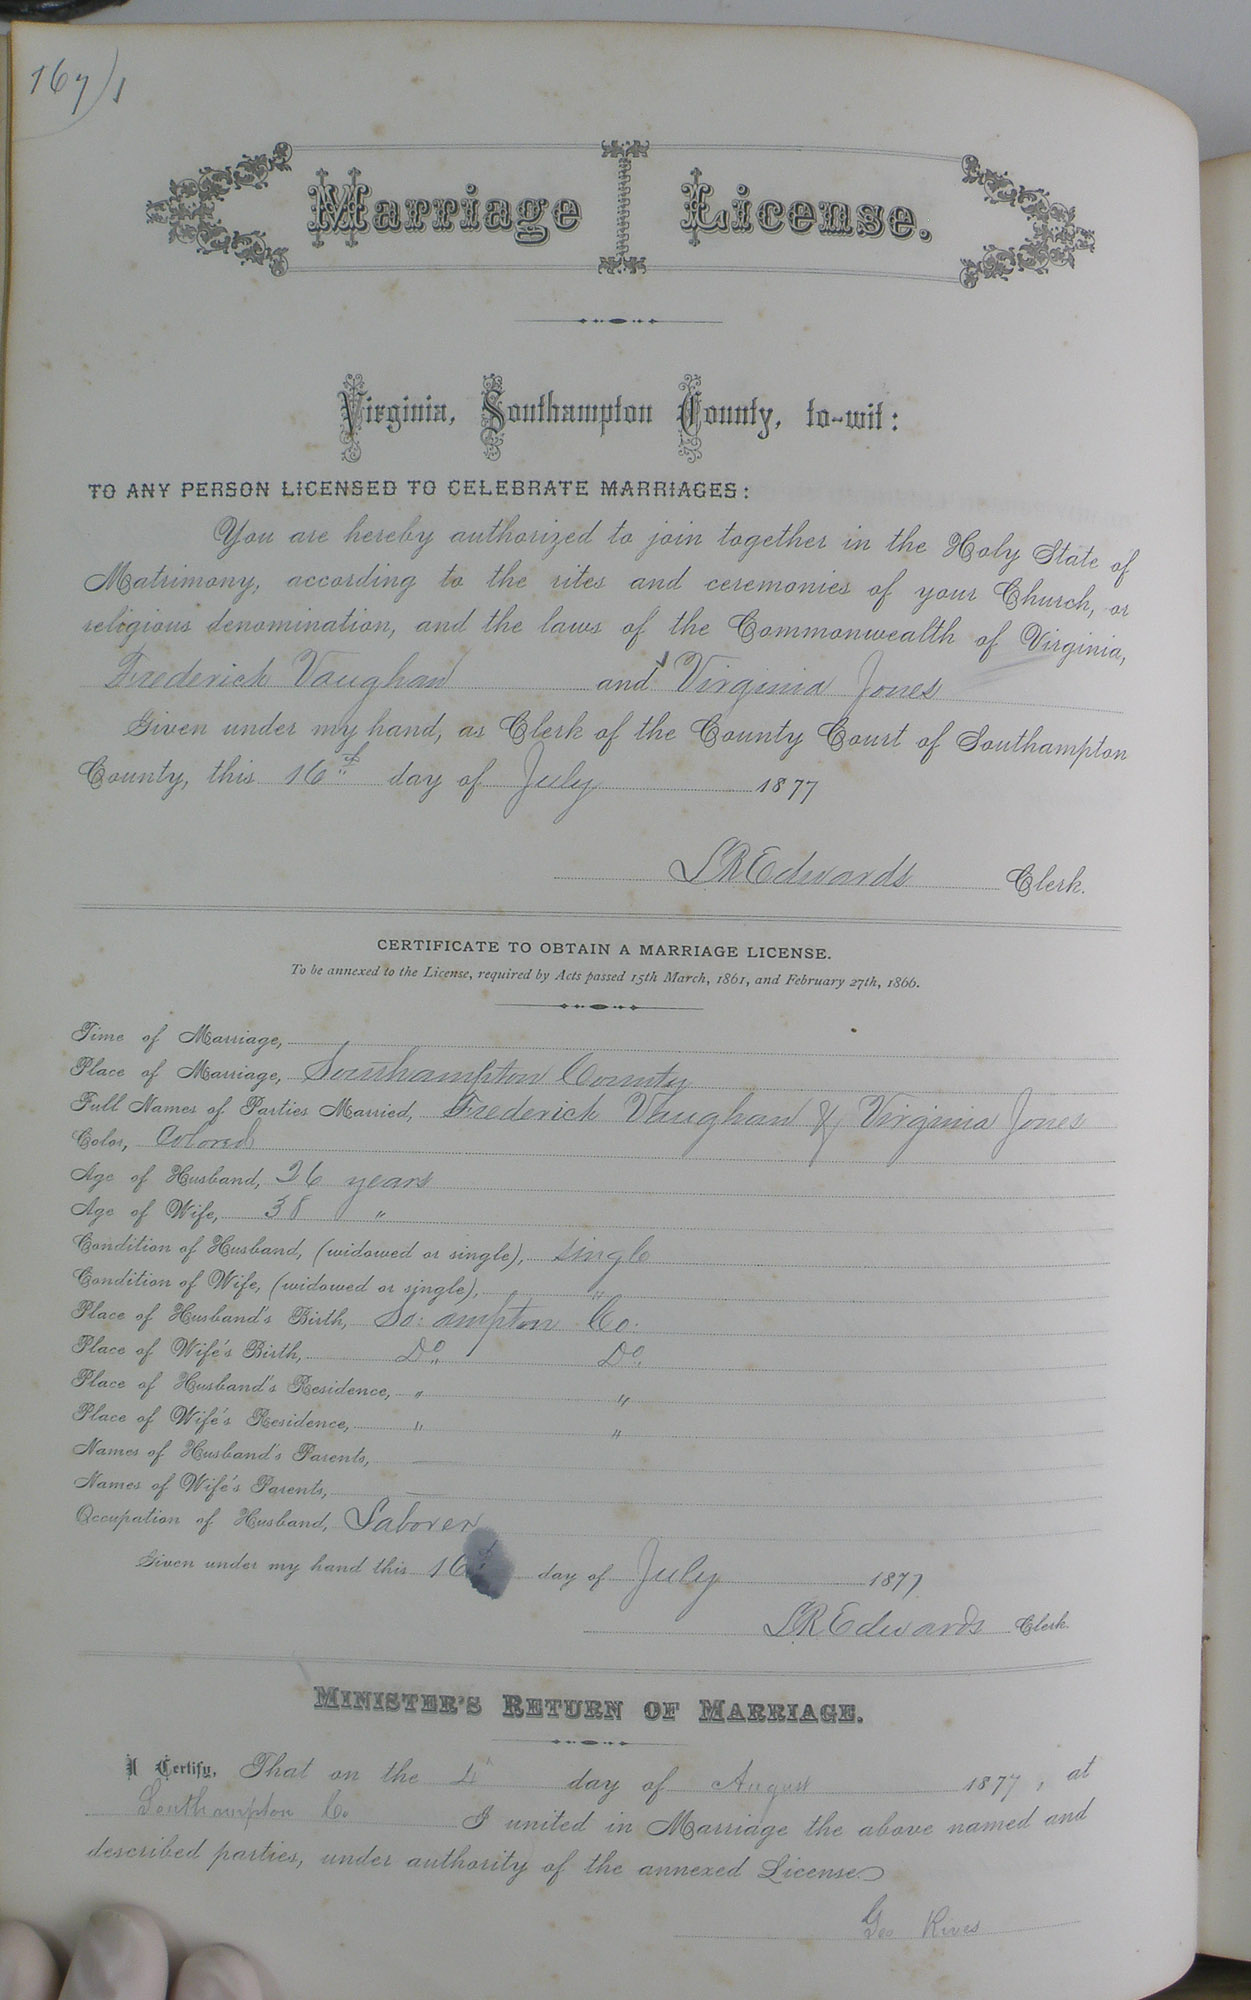 167) 1
Marriage License.
Virginia, Southampton County, to-wit:
TO ANY PERSON LICENSED TO CELEBRATE MARRIAGES:
You are hereby authorized to join together in the Holy State of
Matrimony, according to the rites and ceremonies of your Church, or
religious denomination, and the laws of the Commonwealth of Virginia,
Frederick Vaughan and Virginia Jones
Given under my hand, as Clerk of the County Court of Southampton
County, this 16th day of July 1877
L R Edwards Clerk.
CERTIFICATE TO OBTAIN A MARRIAGE LICENSE.
To be annexed to the License, required by Acts passed 15th March, 1861, and February 27th, 1866.
Time of Marriage,
Place of Marriage, Southampton County
Full Names of Parties Married, Frederick Vaughan & Virginia Jones
Color, Colored
Age of Husband, 36 years
Age of Wife, 38 "
Condition of Husband, (widowed or single), single
Condition of Wife, (widowed or single), "
Place of Husband's Birth, So: ampton Co.
Place of Wife's Birth, Do. Do.
Place of Husband's Residence, " "
Place of Wife's Residence, " "
Names of Husband's Parents, —
Names of Wife's Parents, —
Occupation of Husband, Laborer
Given under my hand this 16th day of July 1877
L R Edwards Clerk.
MINISTER'S RETURN OF MARRIAGE.
I Certify, That on the 4 day of August 1877, at
Southampton Co I united in Marriage the above named and
described parties, under authority of the annexed License
Geo Rives